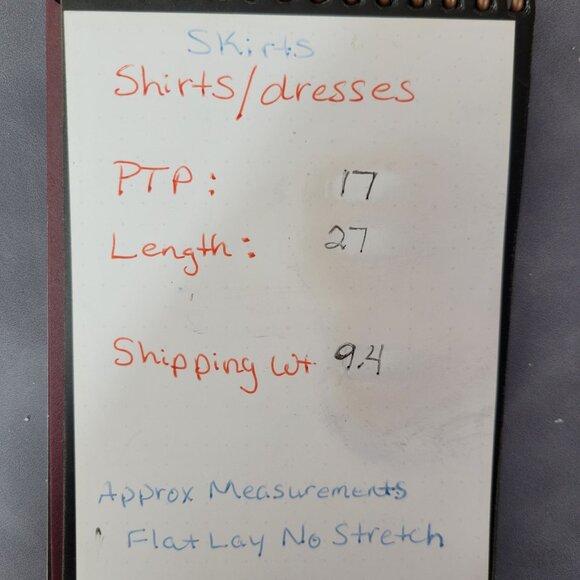 Skirts
Shirts/dresses
PTP: 17
Length: 27
Shipping Wt 9.4
Approx Measurements
Flat Lay No Stretch